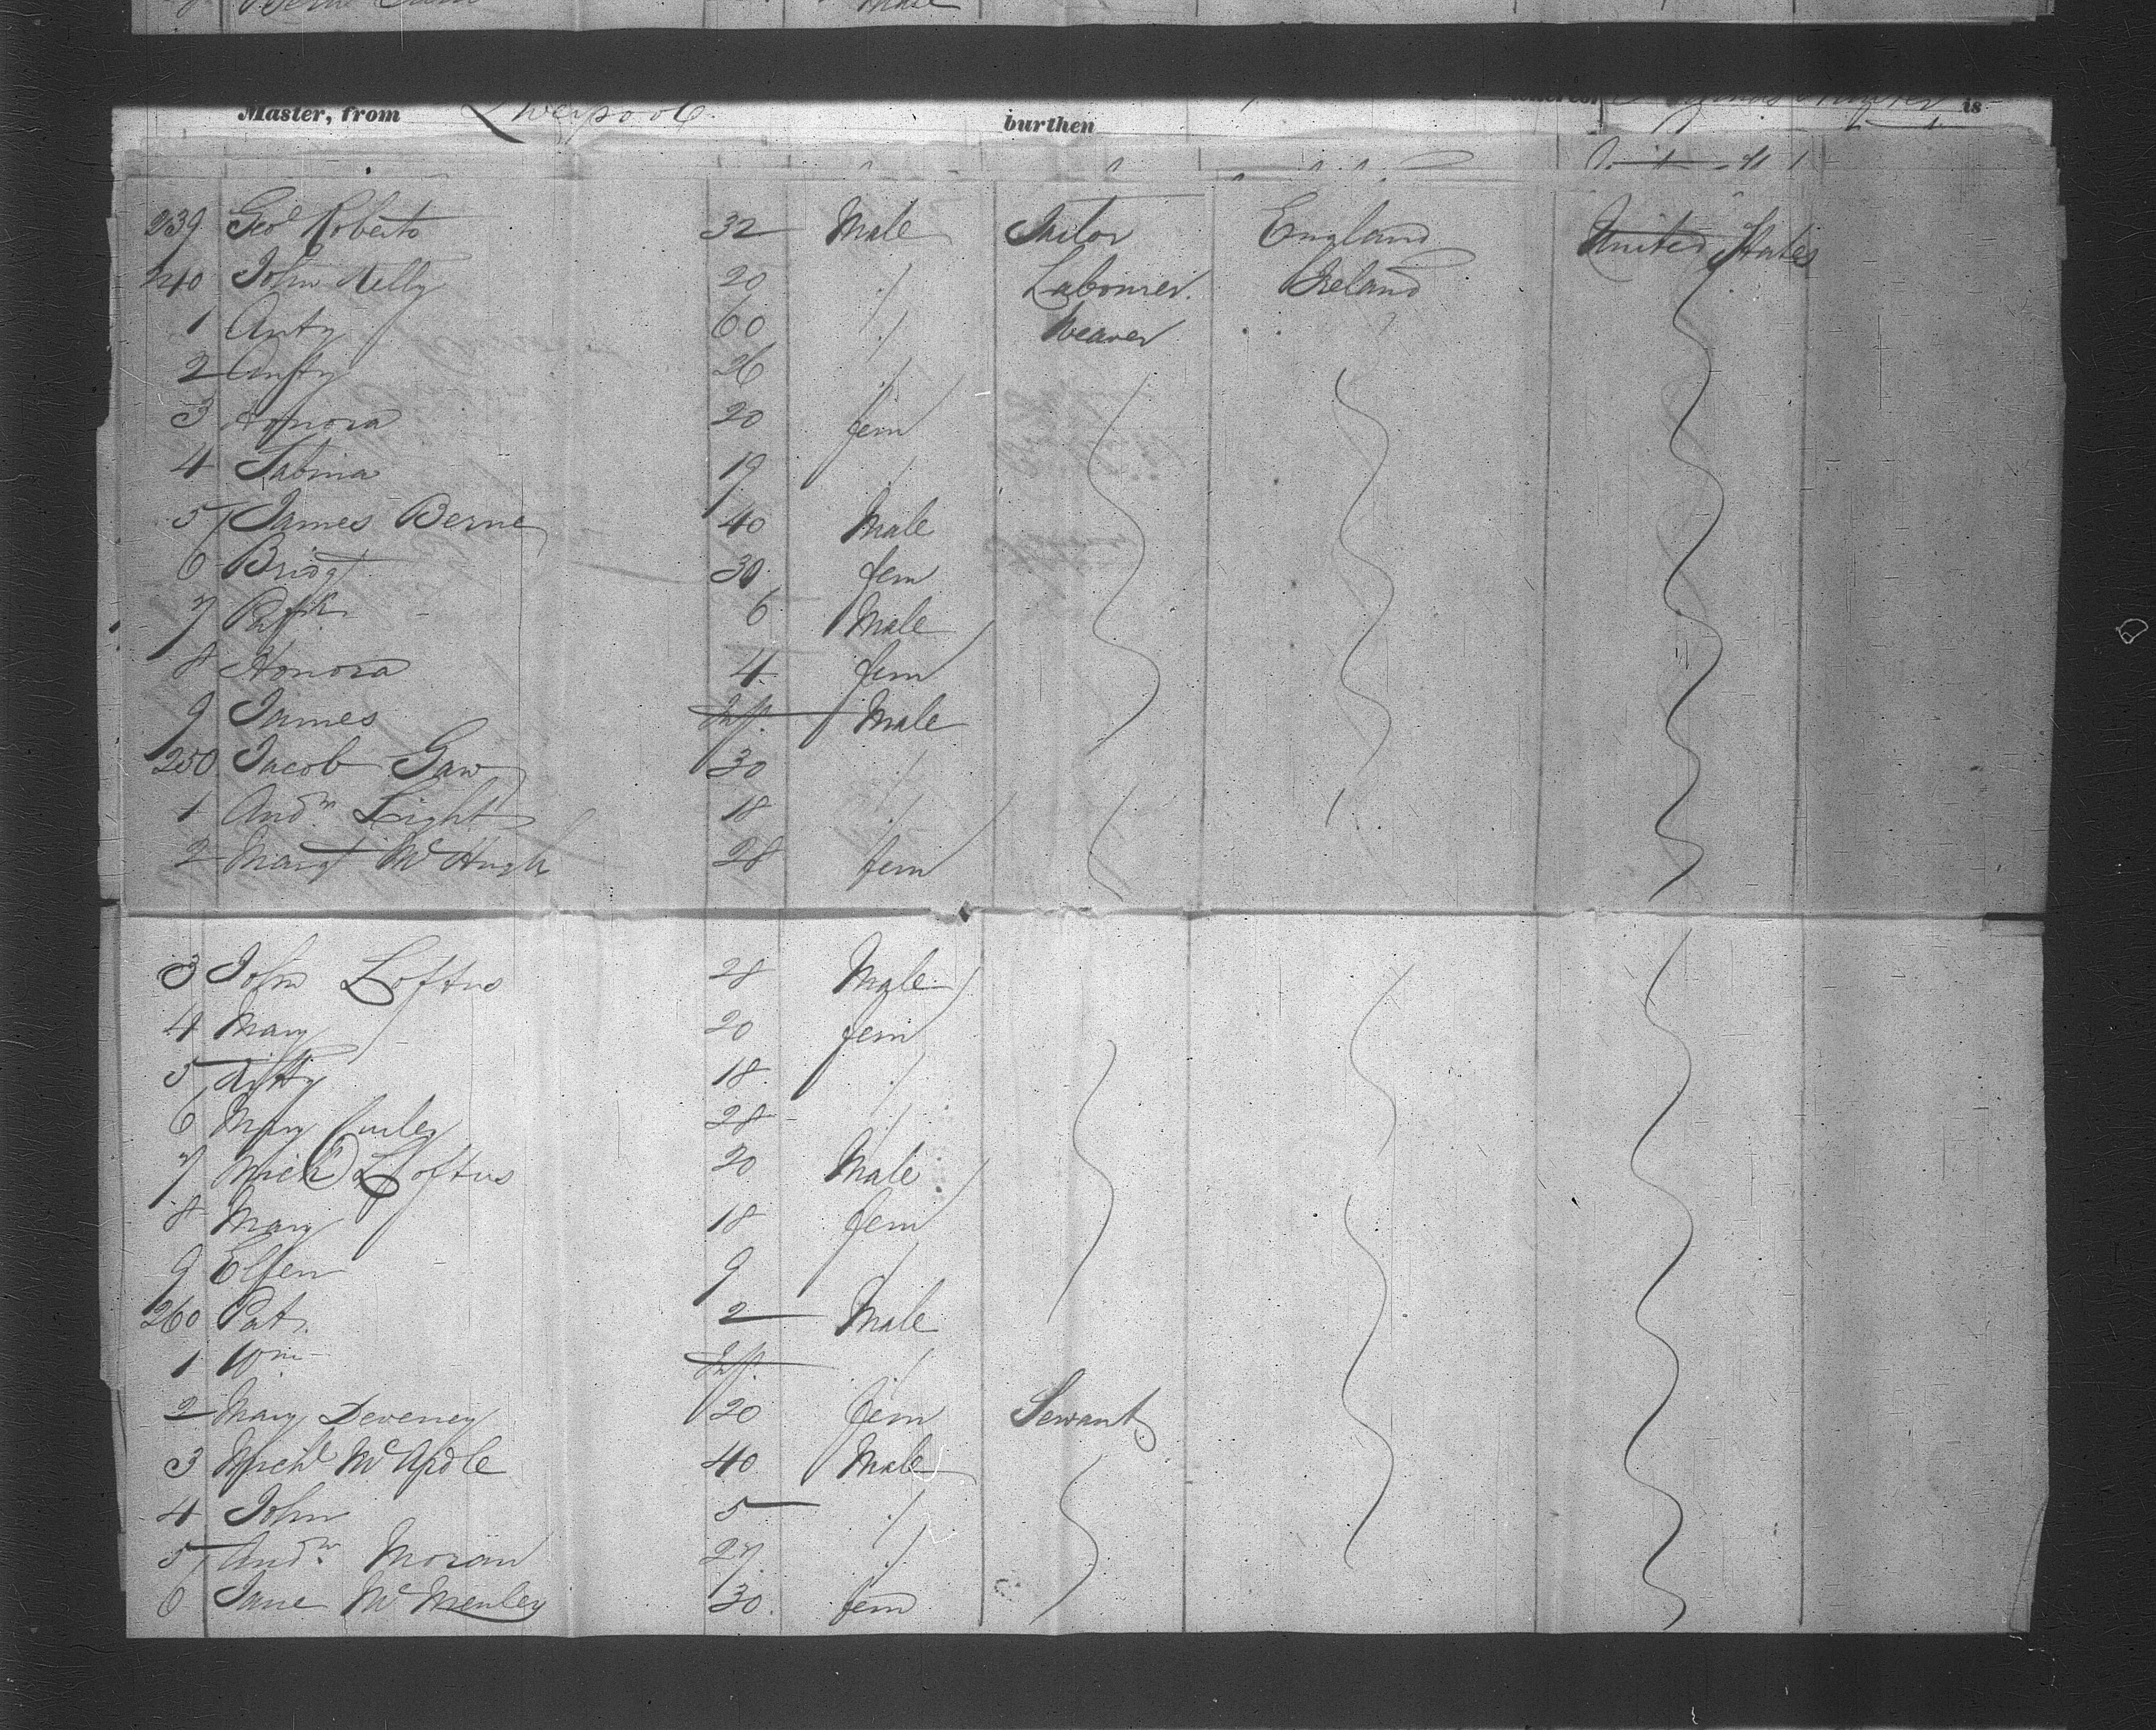 Male
Master, from Liverpool
burthen
is
239 Geo Roberts 32 Male Tailor England United States
240 John Kelly 20 " Labourer Ireland
1 Anty 60 " Weaver
2 Anty 26 "
3 Honora 20 fem
4 Sabina 19 "
5 James Berne 40 Male
6 Bridgt 30 fem
7 Patk 6 Male
8 Honora 4 fem
9 James Inft. Male
250 Jacob Gaw 30 "
1 Andw Light 18 "
2 Margt McHugh 28 fem
3 John Loftus 28 Male
4 Mary 20 fem
5 Kitty 18 "
6 Mary Curley 28 "
7 Mich Loftus 20 Male
8 Mary 18 fem
9 Ellen 9 "
260 Pat. 2 Male
1 Wm Inft. "
2 Mary Deveney 20 fem Servant
3 Michl McArdle 40 Male
4 John 5 "
5 Andw Moran 27 "
6 Jane McMenley 30 fem